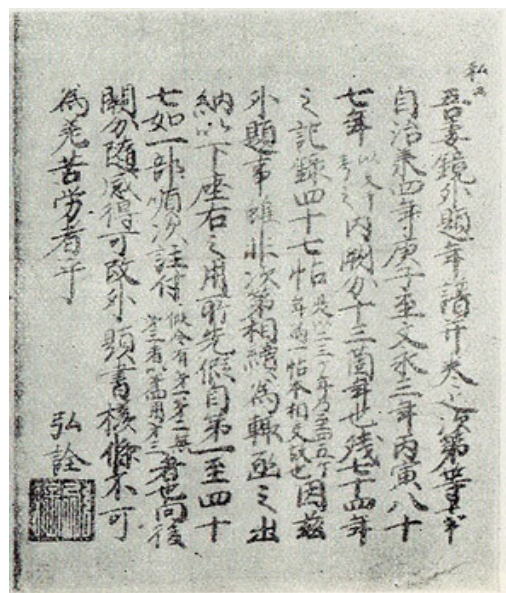 私云
吾妻鏡外題年譜并巻之次第等事
自治承四年庚子至文永三年丙寅八十
七年 内闕分十三箇年也残七十四年
之記録四十七帖 因茲
外題事雖非次第相續為輙函之出
納以下座右之用所先假自第一至四十
七如一部順次註付 者也向後
闕分随感得可改外題書核條不可
為先苦労者乎
弘詮